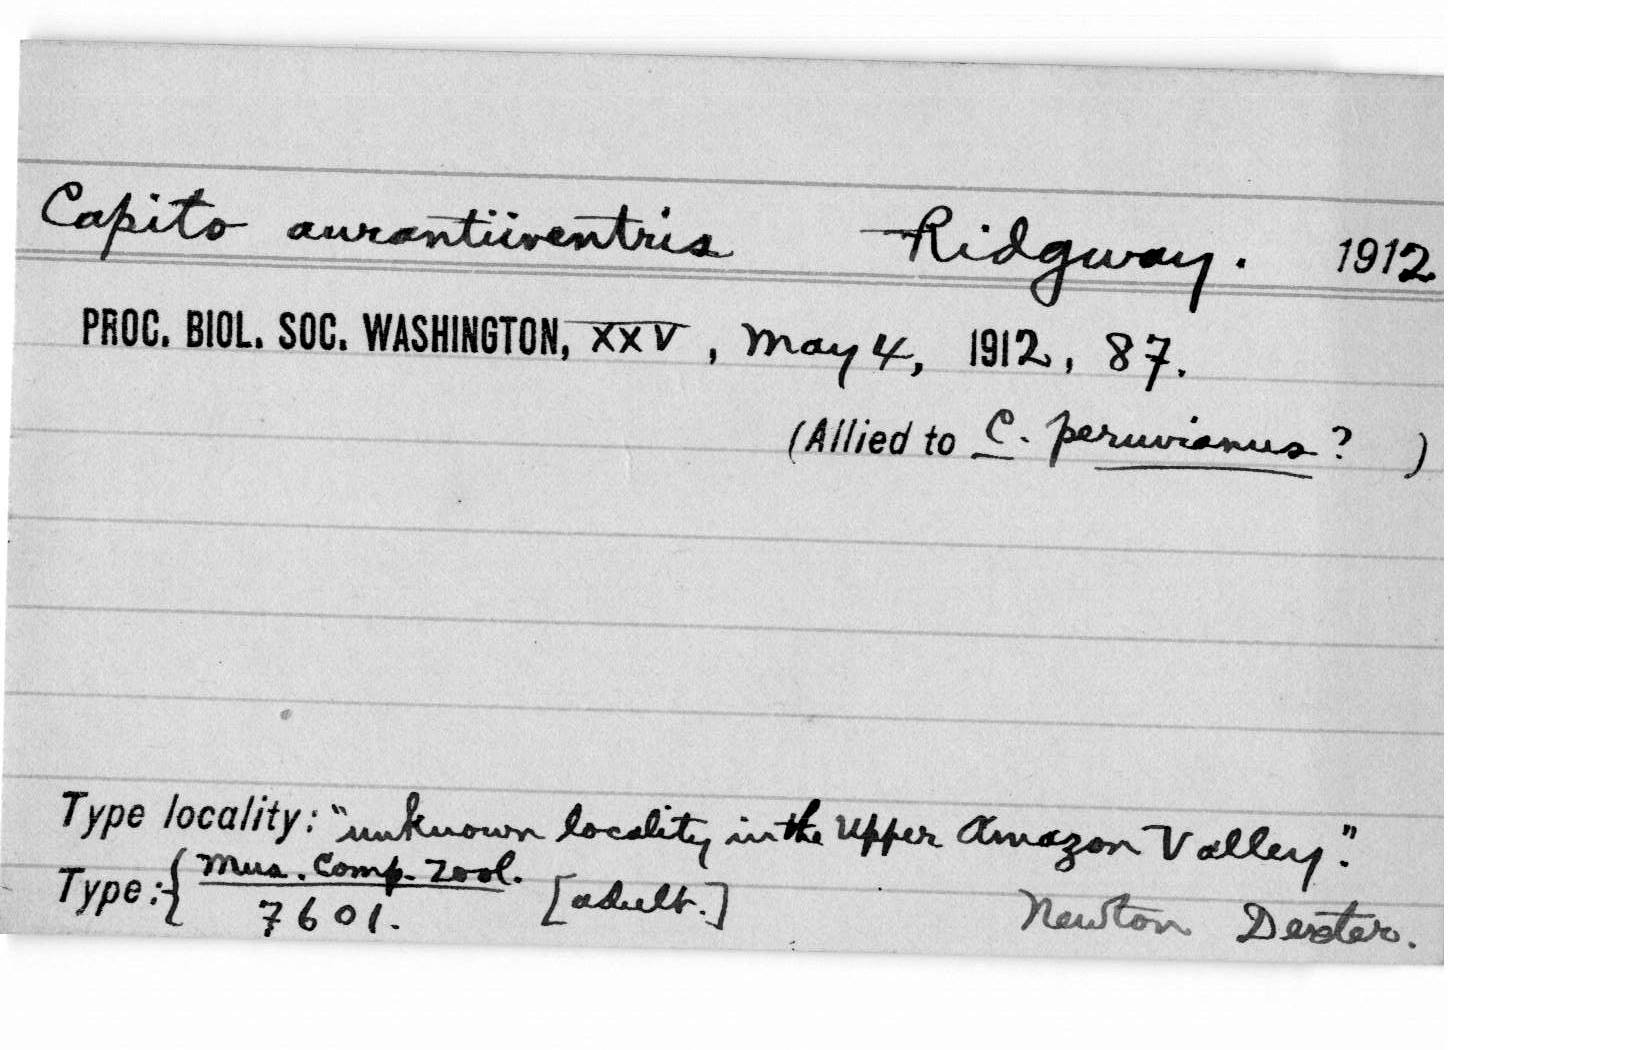 Capito aurantiiventris Ridgway. 1912
PROC. BIOL. SOC. WASHINGTON, XXV, May 4, 1912, 87.
(Allied to C. peruvianus? )
Type locality: "unknown locality in the Upper Amazon Valley."
Type: { Mus. Comp. Zool. [adult.] Newton Dexter.
7601.